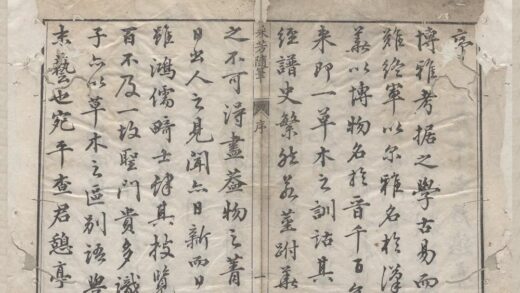 博雅考据之學古易而
難終軍以尔雅名於漢
華以博物名於晉千百年
来即一草木之訓詁其
經譜史繁
采芳隨筆 序 一
之不可得盡蓋物之菁
日出人之見聞亦日新而日
雖鴻儒畸士肆其披覽
百不及一故聖門貴多識
子亦以草木之區別語學
末藝也宛平查君憩亭